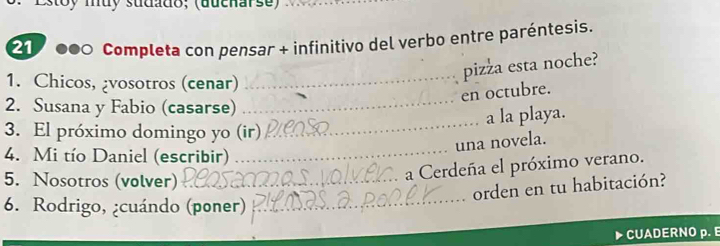 Estoy muy sudado; (ducharse)
21 Completa con pensar + infinitivo del verbo entre paréntesis.
1. Chicos, ¿vosotros (cenar) pizza esta noche?
2. Susana y Fabio (casarse) en octubre.
3. El próximo domingo yo (ir) pienso a la playa.
4. Mi tío Daniel (escribir) una novela.
5. Nosotros (volver) pensamos volver a Cerdeña el próximo verano.
6. Rodrigo, ¿cuándo (poner) piensas a poner orden en tu habitación?
CUADERNO p.